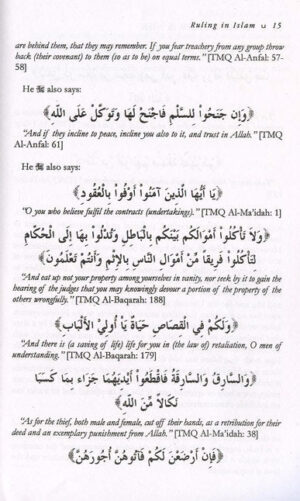 Ruling in Islam 15
are behind them, that they may remember. If you fear treachery from any group throw
back (their covenant) to them (so as to be) on equal terms." [TMQ Al-Anfal: 57-
58]
He ﷻ also says:
﴿وَإِن جَنَحُواْ لِلسَّلْمِ فَاجْنَحْ لَهَا وَتَوَكَّلْ عَلَى اللّهِ﴾
"And if they incline to peace, incline you also to it, and trust in Allah." [TMQ
Al-Anfal: 61]
He ﷻ also says:
﴿يَا أَيُّهَا الَّذِينَ آمَنُواْ أَوْفُواْ بِالْعُقُودِ﴾
"O you who believe fulfil the contracts (undertakings)." [TMQ Al-Ma'idah: 1]
﴿وَلاَ تَأْكُلُواْ أَمْوَالَكُم بَيْنَكُم بِالْبَاطِلِ وَتُدْلُواْ بِهَا إِلَى الْحُكَّامِ
لِتَأْكُلُواْ فَرِيقًا مِّنْ أَمْوَالِ النَّاسِ بِالإِثْمِ وَأَنتُمْ تَعْلَمُونَ﴾
"And eat up not your property among yourselves in vanity, nor seek by it to gain the
hearing of the judges that you may knowingly devour a portion of the property of the
others wrongfully." [TMQ Al-Baqarah: 188]
﴿وَلَكُمْ فِي الْقِصَاصِ حَيَاةٌ يَاْ أُولِيْ الأَلْبَابِ﴾
"And there is (a saving of life) life for you in (the law of) retaliation, O men of
understanding." [TMQ Al-Baqarah: 179]
﴿وَالسَّارِقُ وَالسَّارِقَةُ فَاقْطَعُواْ أَيْدِيَهُمَا جَزَاء بِمَا كَسَبَا
نَكَالاً مِّنَ اللّهِ﴾
"As for the thief, both male and female, cut off their hands, as a retribution for their
deed and an exemplary punishment from Allah." [TMQ Al-Ma'idah: 38]
﴿فَإِنْ أَرْضَعْنَ لَكُمْ فَآتُوهُنَّ أُجُورَهُنَّ﴾